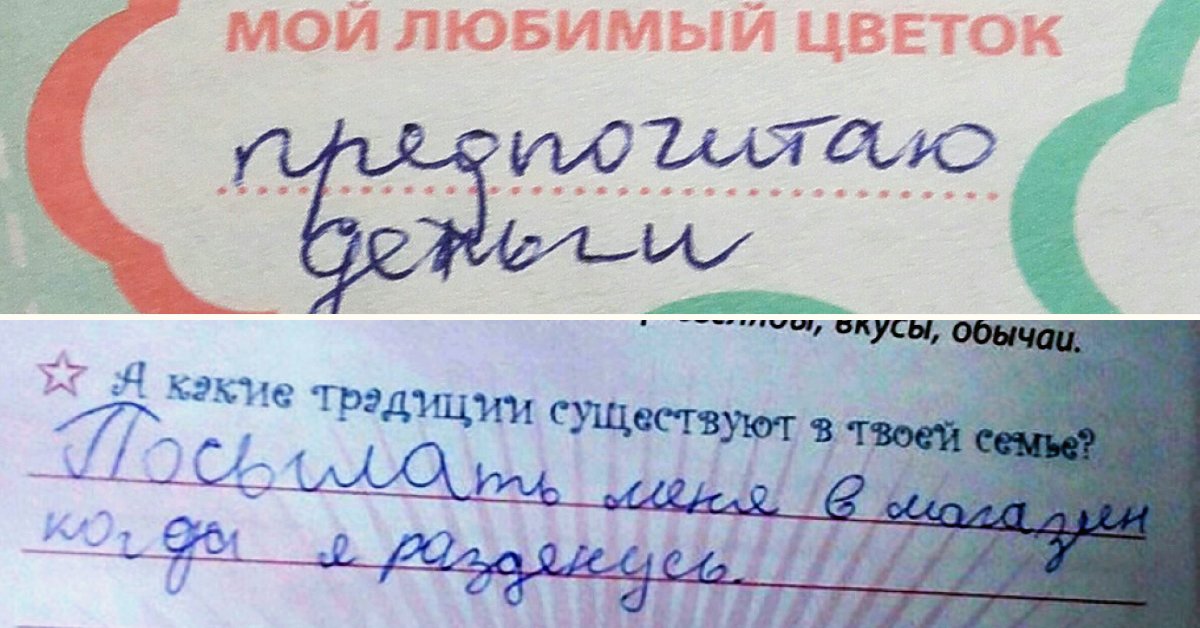 МОЙ ЛЮБИМЫЙ ЦВЕТОК
предпочитаю
деньги
вкусы, обычаи.
А какие традиции существуют в твоей семье?
Посылать меня в магазин
когда я разденусь.